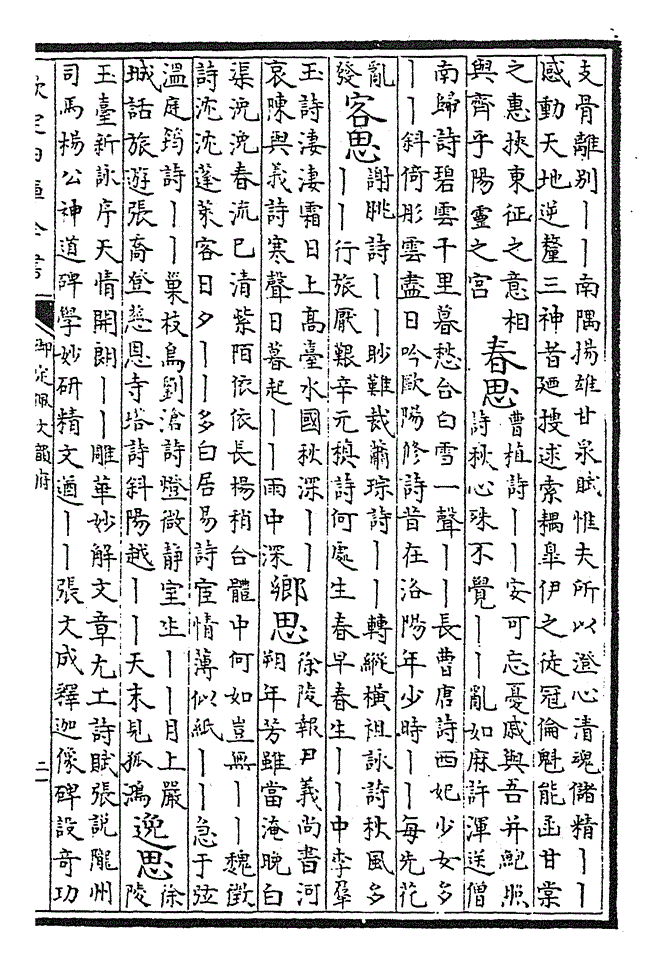 支骨離别丨丨南隅揚雄甘泉賦惟夫所以澄心清魂儲精丨丨
感動天地逆釐三神昔廼搜逑索耦臯伊之徒冠倫魁能函甘棠
之惠挾東征之意相
與齊乎陽靈之宫
春思
曹植詩丨丨安可忘憂戚與吾并鮑照
詩秋心殊不覺丨丨亂如麻許渾送僧
南歸詩碧雲千里暮愁合白雪一聲丨丨長曹唐詩西妃少女多
丨丨斜倚彤雲盡日吟歐陽修詩昔在洛陽年少時丨丨每先花
亂
發
客思
謝朓詩丨丨眇難裁蕭琮詩丨丨轉縱橫祖詠詩秋風多
丨丨行旅厭艱辛元稹詩何處生春早春生丨丨中李羣
玉詩淒淒霜日上高臺水國秋深丨丨
哀陳與義詩寒聲日暮起丨丨雨中深
鄉思
徐陵報尹義尚書河
朔年芳雖當淹晚白
渠浼浼春流已清紫陌依依長楊稍合體中何如豈無丨丨魏徵
詩沈沈蓬萊客日夕丨丨多白居易詩宦情薄似紙丨丨急于弦
溫庭筠詩丨丨巢枝鳥劉滄詩燈微静室生丨丨月上嚴
城話旅遊張喬登慈恩寺塔詩斜陽越丨丨天末見孤鴻
逸思
徐
陵
玉臺新詠序天情開朗丨丨雕華妙解文章尤工詩賦張說隴州
司馬楊公神道碑學妙研精文遒丨丨張文成釋迦像碑設奇功
欽定四庫全書
御定佩文韻府
二